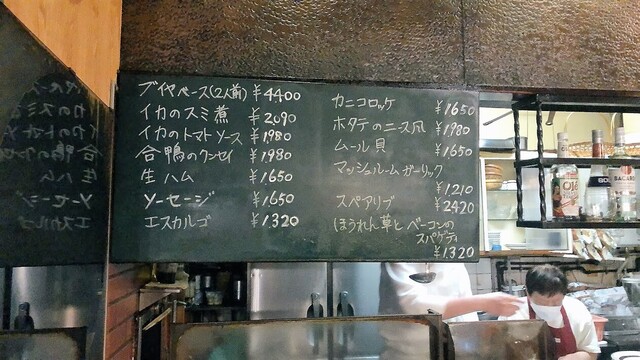 ブイヤベース(2人前) ¥4400
イカのスミ煮 ¥2090
イカのトマトソース ¥1980
合鴨のクンセイ ¥1980
生ハム ¥1650
ソーセージ ¥1650
エスカルゴ ¥1.320
カニコロッケ ¥1650
ホタテのニース風 ¥1980
ムール貝 ¥1650
マッシュルームガーリック
¥1210
スペアリブ ¥2420
ほうれん草とベーコンの
スパゲティ
¥1320
BACARDI